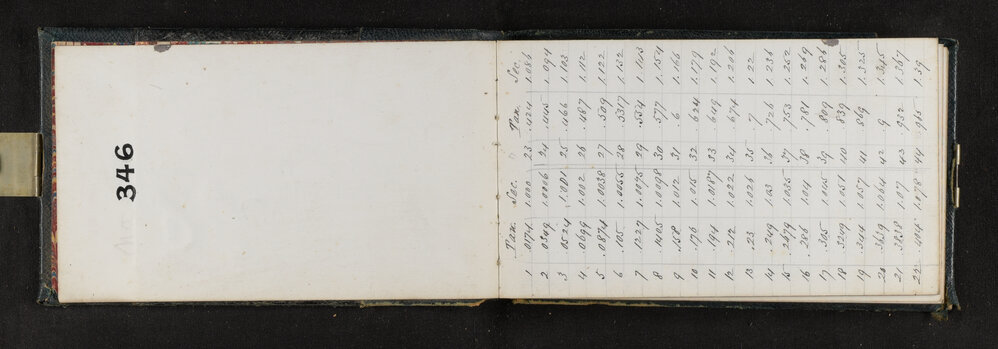 346
Tan. Sec. Tan. Sec.
1 .0174 1.000 23 .424 1.086
2 .0349 1.0006 24 .445 1.094
3 .0524 1.001 25 .466 1.103
4 .0699 1.002 26 .487 1.112
5 .0874 1.0038 27 .509 1.122
6 .105 1.0055 28 .5317 1.132
7 .1227 1.0075 29 .554 1.143
8 .1405 1.0098 30 .577 1.154
9 .158 1.012 31 .6 1.166
10 .176 1.015 32 .624 1.179
11 .194 1.0187 33 .649 1.192
12 .212 1.022 34 .674 1.206
13 .23 1.026 35 .7 1.22
14 .249 1.03 36 .726 1.236
15 .2679 1.035 37 .753 1.252
16 .286 1.04 38 .781 1.269
17 .305 1.045 39 .809 1.286
18 .3249 1.051 40 .839 1.305
19 .344 1.057 41 .869 1.325
20 .3639 1.064 42 .9 1.345
21 .3838 1.07 43 .932 1.367
22 .404 1.078 44 .965 1.39